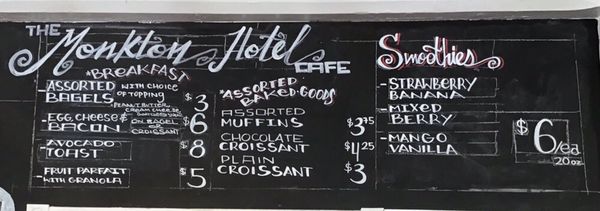 THE
Monkton Hotel
CAFE
*BREAKFAST
-ASSORTED BAGELS WITH CHOICE OF TOPPING
PEANUT BUTTER
CREAM CHEESE
$3
-EGG, CHEESE &
BACON
ON BAGEL
OR
CROISSANT
$6
-AVOCADO
TOAST
$8
-FRUIT PARFAIT
WITH GRANOLA
$5
*ASSORTED
BAKED GOODS
ASSORTED
MUFFINS
$3.75
CHOCOLATE
CROISSANT
$4.25
PLAIN
CROISSANT
$3
Smoothies
-STRAWBERRY
BANANA
-MIXED
BERRY
-MANGO
VANILLA
$6/ea
20oz